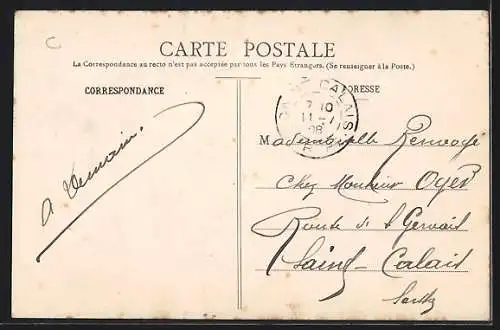 C
CARTE POSTALE
La Correspondance au recto n'est pas acceptée par tous les Pays Étrangers. (Se renseigner à la Poste.)
CORRESPONDANCE
ADRESSE
CALAIS
7 10
11 - 7
08
A demain.
Mademoiselle
Chez Monsieur Oger
Route de St Gervais
Saint-Calais
Sarthe